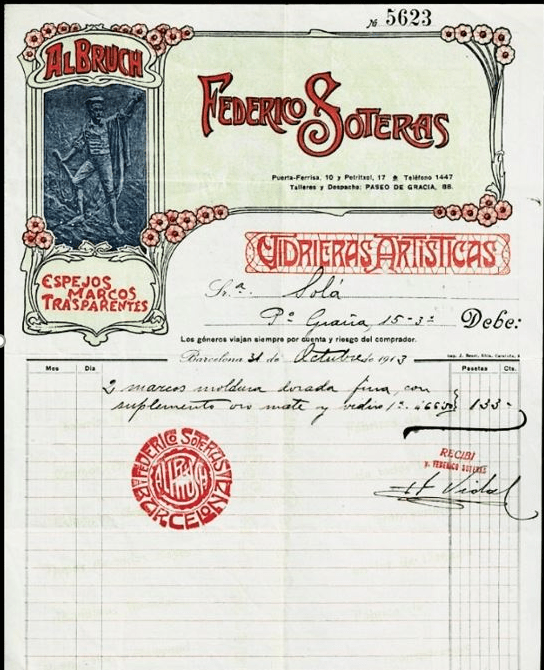 № 5623
AL BRUCH
FEDERICO SOTERAS
Puerta-Ferrisa, 10 y Petritxol, 17 Teléfono 1447
Talleres y Despacho: PASEO DE GRACIA, 88.
VIDRIERAS ARTÍSTICAS
ESPEJOS
MARCOS
TRASPARENTES
Sr.ª Solá
Pº Gracia, 15-3º Debe:
Los géneros viajan siempre por cuenta y riesgo del comprador.
Barcelona 31 de Octubre de 1913
Mes Dia Pesetas Cts.
2 marcos moldura dorada fina, con
suplemento oro mate y vidrio 1ª 66'50 133-
FEDERICO SOTERAS
AL BRUCH
BARCELONA
RECIBÍ
P. FEDERICO SOTERAS
Vidal